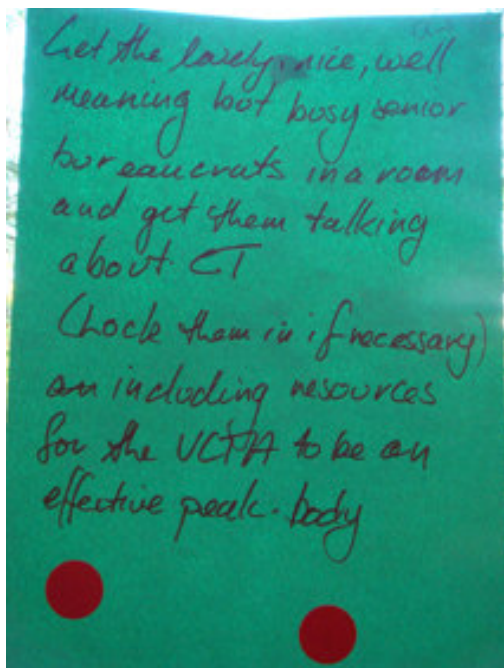 Get the lovely, nice, well
meaning but busy senior
bureaucrats in a room
and get them talking
about CT
(Lock them in if necessary)
an including resources
for the VCTA to be an
effective peak body